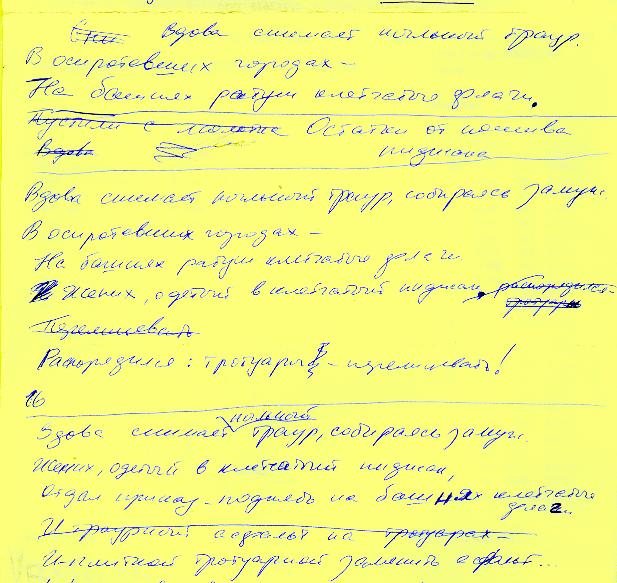 Вдова снимает польный траур.
В осиротевших городах –
На башнях ратуш клетчатые флаги.
Пустили с молотка Остатки от пошива
Вдова пиджака
Вдова снимает польный траур, собираясь замуж.
В осиротевших городах –
На башнях ратуш клетчатые флаги
Жених, одетый в клетчатый пиджак, распорядился
тротуары
Перемшевать
Распорядился: тротуары – перешивать!
16
польный
Вдова снимает траур, собираясь замуж.
Жених, одетый в клетчатый пиджак,
Отдал приказ – поднять на башнях клетчатые
флаги.
И траурный асфальт на тротуарах –
И плиткой тротуарной заменить асфальт...